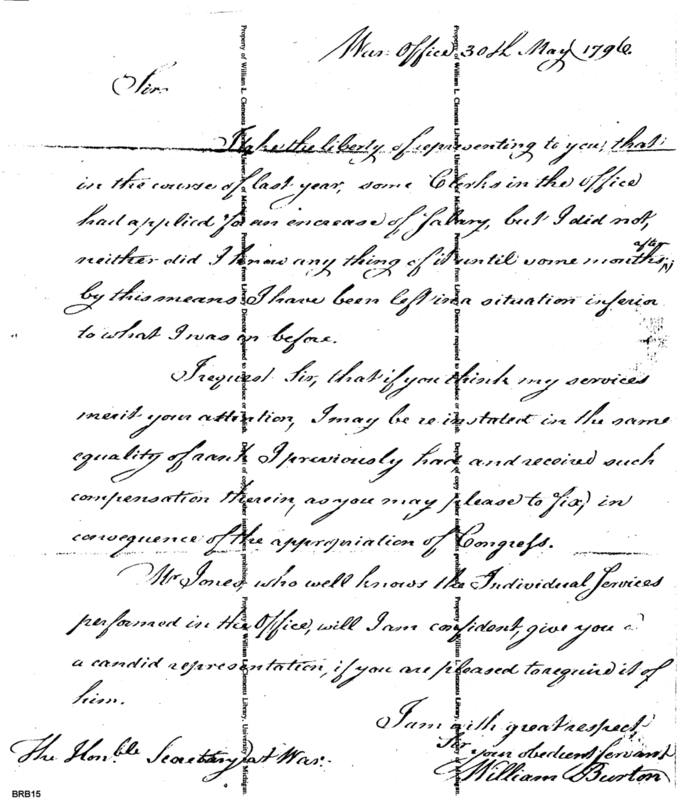 War Office 30th May 1796.
Sir
I take the liberty of representing to you, that
in the course of last year, some Clerks in the Office
had applied for an encrease of Salary, but I did not,
neither did I know any thing of it until some months after,
by this means I have been left in a situation inferior
to what I was in before.
I request Sir, that if you think my services
merit your attention, I may be reinstated in the same
equality of rank I previously had and received such
compensation therein, as you may please to fix, in
consequence of the appropriation of Congress.
Mr Jones, who well knows the Individual Services
performed in the Office, will I am confident, give you
a candid representation, if you are pleased to require it of
him.
I am with great respect,
Sir
your obedient Servant
William Burton
The Honble Secretary at War.
Property of William L. Clements Library, University of Michigan. Permission from Library Director required to reproduce or publish. Deposit of copy in other institution prohibited.
BRB15